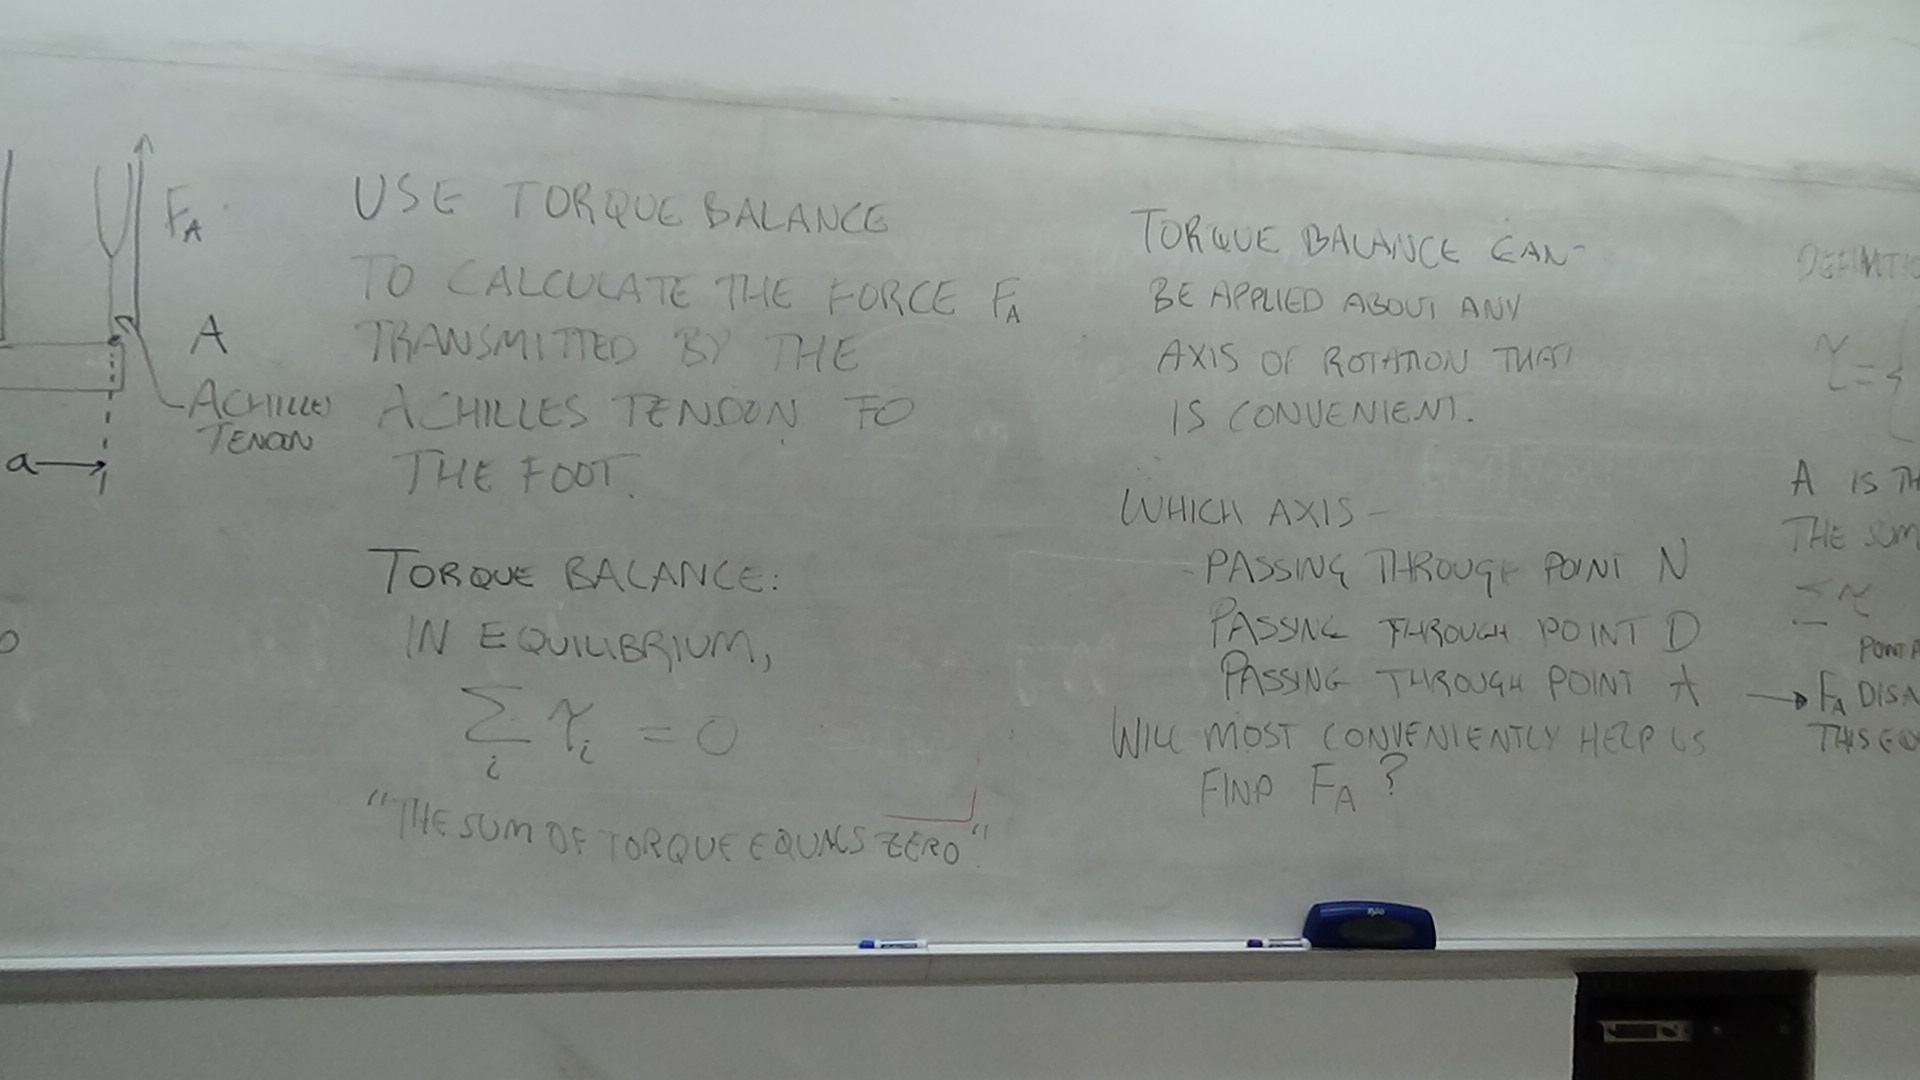 F_A
A
ACHILLES
TENON
a
USE TORQUE BALANCE
TO CALCULATE THE FORCE F_A
TRANSMITTED BY THE
ACHILLES TENDON TO
THE FOOT.
TORQUE BALANCE:
IN EQUILIBRIUM,
∑_i τ_i = 0
"THE SUM OF TORQUE EQUALS ZERO".
TORQUE BALANCE CAN
BE APPLIED ABOUT ANY
AXIS OF ROTATION THAT
IS CONVENIENT.
WHICH AXIS -
PASSING THROUGH POINT N
PASSING THROUGH POINT D
PASSING THROUGH POINT A
WILL MOST CONVENIENTLY HELP US
FIND F_A ?
τ = {
A IS TH
THE SUM
∑ τ
POINT A
→ F_A DISA
THIS EQ